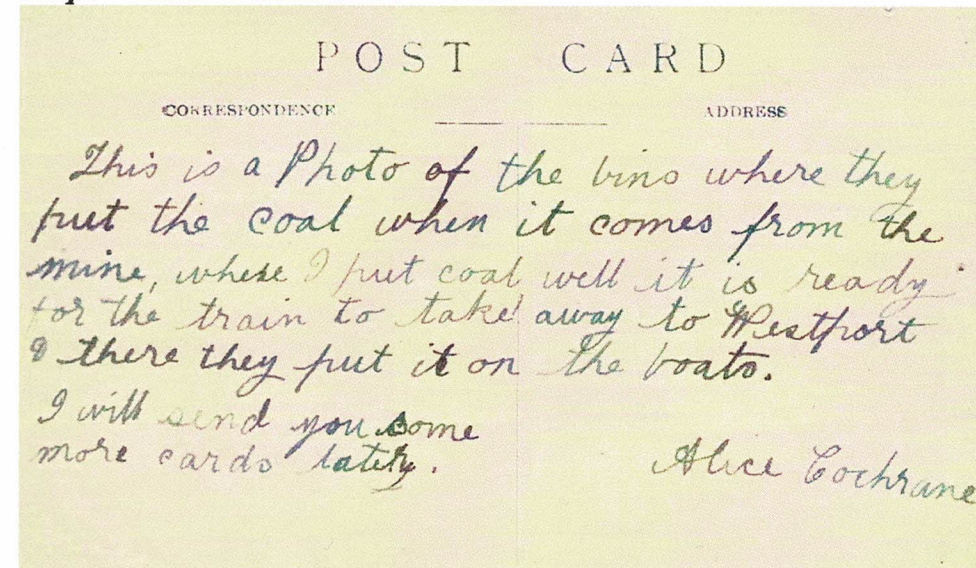 POST CARD
CORRESPONDENCE ADDRESS
This is a Photo of the bins where they
put the coal when it comes from the
mine, where I put coal well it is ready
for the train to take away to Westport
& there they put it on the boats.
I will send you some
more cards later.
Alice Cochrane